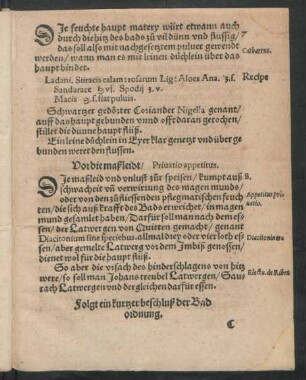 DIe feuchte haupt matery würt etwann auch
durch die hitz des bads zů vil dünn vnd flüssig/
das soll also mit nachgesetztem puluer gewendt
werden/ wann man es mit einen düchlein über das
haupt bindet.
Catarrus.
Ladani, Stiracis calam: rosarum Lig: Aloes Ana. ʒ.ß.
Recipe
Sandarace
Spodij ʒ.v.
Macis
fiat puluis.
Schwartzer gedörter Coriander Nigella genant/
auff das haupt gebunden vnnd offt daran gerochen/
stillet die dünne haupt flüß.
Ein leine düchlein in Eyer klar genetzt vnd über ge
bunden weret den flüssen.
Vor die maßleid/ Priuatio appetitus.
DIe maßleid vnd vnlust zůr speisen/ kumpt auß
schwacheit vñ verwirung des magen mundo/
oder von den zůfliessenden pflegmatischen feuch
ten/ die sich auß krafft des Bads erweichet/ in magen
mund gesamlet haben/ Darfür soll man nach dem es
sen/ der Latwergen von Quitten gemacht/ genant
Diacitonium sine speciebus, allmal drey oder vier loth es
sen/ aber gemelte Latwerg vor dem Imbiß genossen/
dienet wol für die haupt flüß.
Appetitus priuatio.
Diacitonium
So aber die vrsach des hinderschlagens von hitz
were/ so soll man Johans treubel Latwergen/ Sau
rach Latwergen vnd dergleichen darfür essen.
Folgt ein kurtzer beschluß der Bad
ordnung.
C